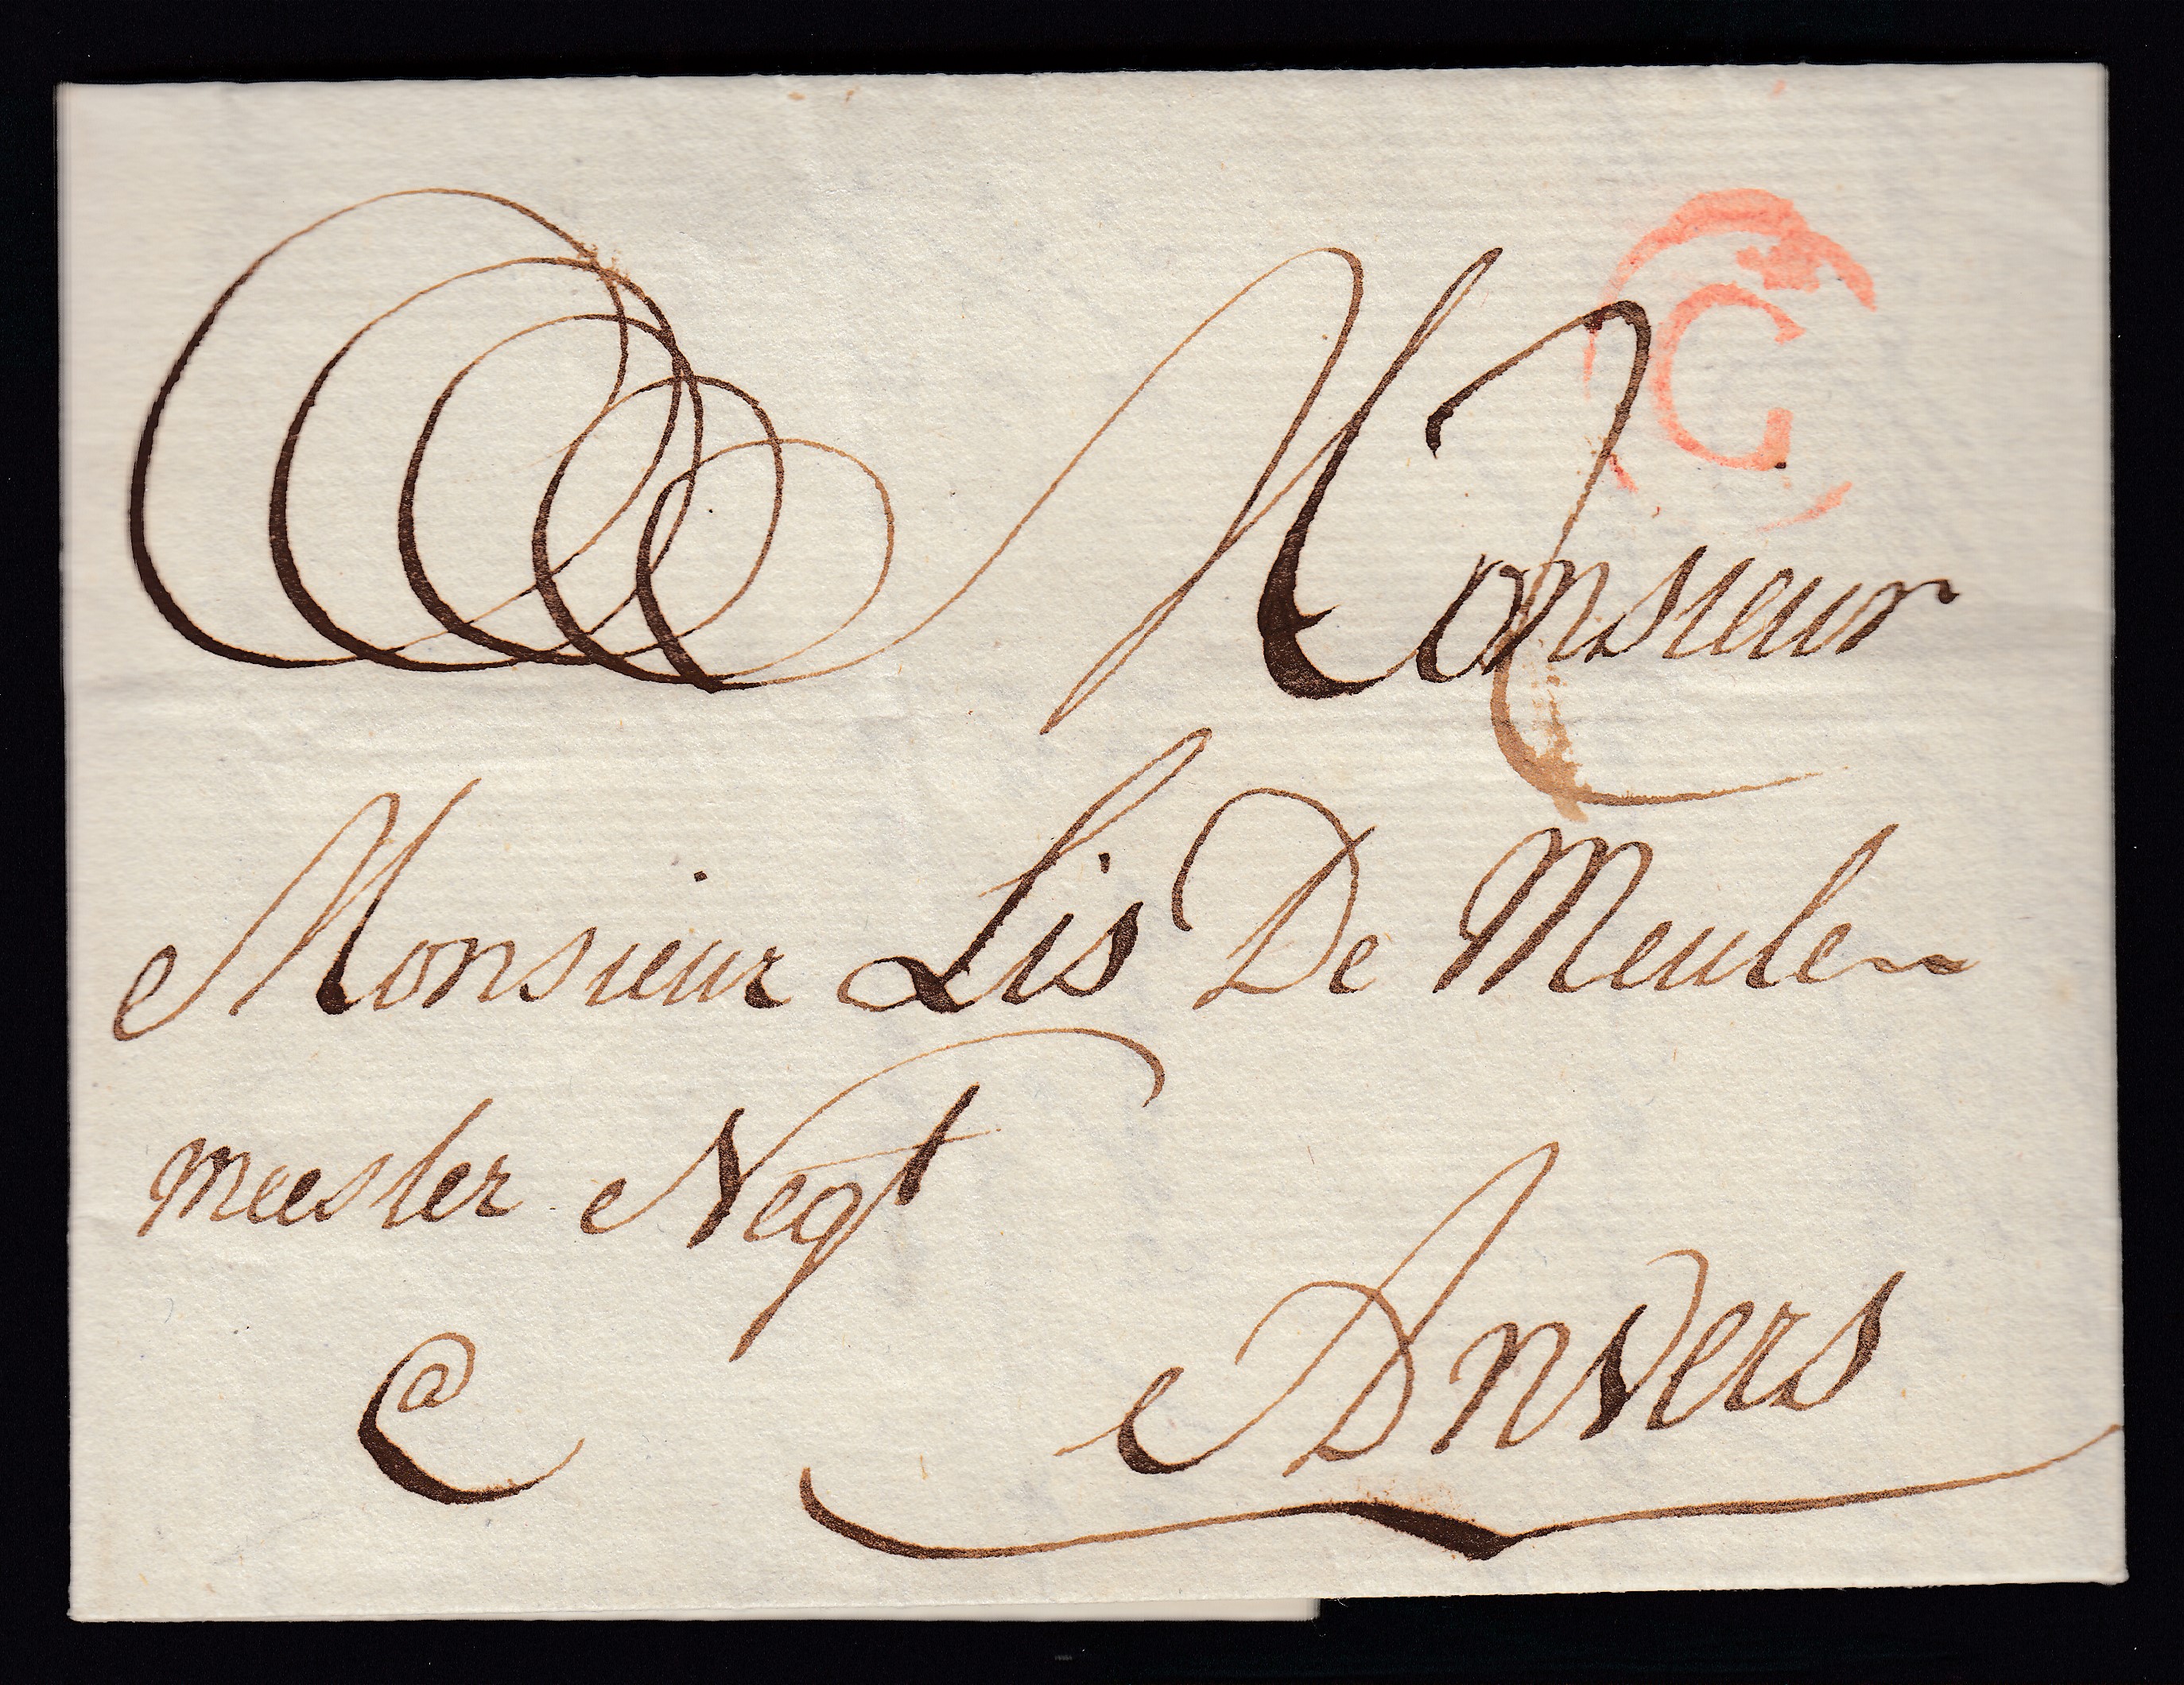 C
Monsieur
Monsieur Lis De Meulen
meester Negt
@ Anvers